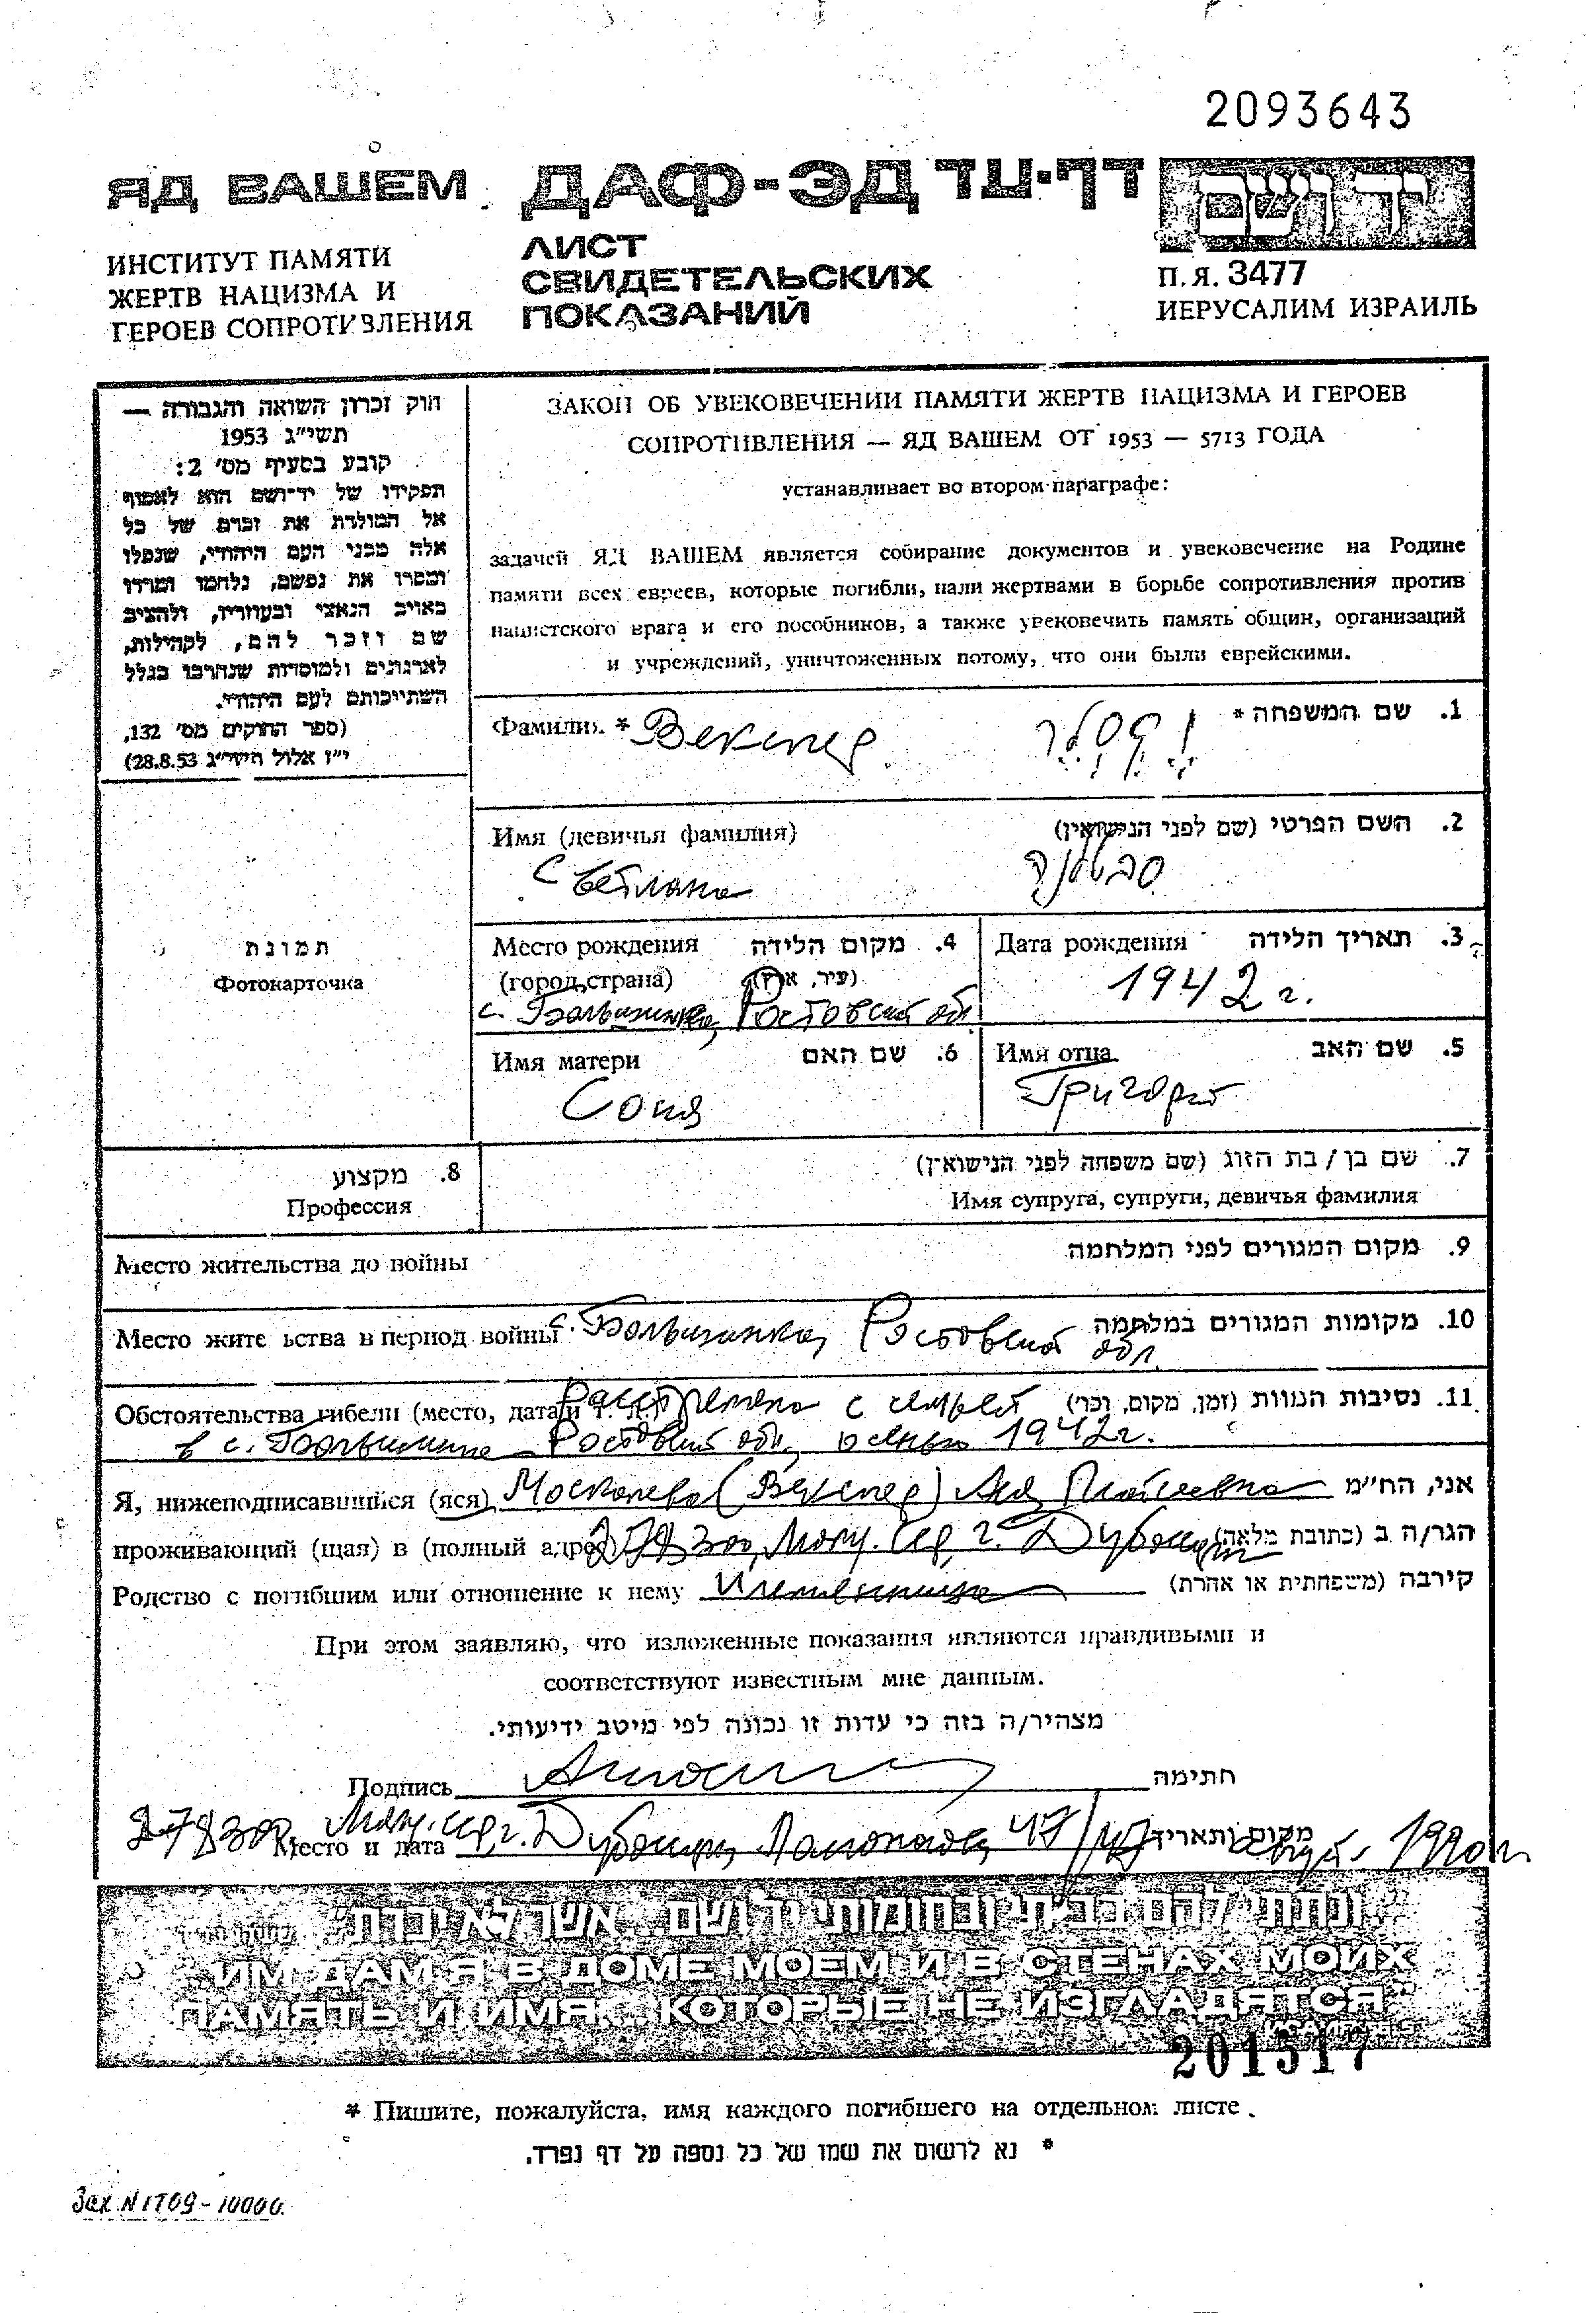 2093643
ЯД ВАШЕМ ДАФ-ЭД דף-עד יד ושם
ИНСТИТУТ ПАМЯТИ
ЖЕРТВ НАЦИЗМА И
ГЕРОЕВ СОПРОТИВЛЕНИЯ
ЛИСТ
СВИДЕТЕЛЬСКИХ
ПОКАЗАНИЙ
П.Я. 3477
ИЕРУСАЛИМ ИЗРАИЛЬ
חוק זכרון השואה והגבורה —
תשי״ג 1953
קובע בסעיף מס׳ 2:
תפקידו של יד־ושם הוא לאסוף
אל המולדת את זכרם של כל
אלה מבני העם היהודי, שנפלו
ומסרו את נפשם, נלחמו ומרדו
באויב הנאצי ובעוזריו, ולהציב
שם וזכר להם, לקהילות,
לארגונים ולמוסדות שנחרבו בגלל
השתייכותם לעם היהודי.
(ספר החוקים מס׳ 132,
י״ז אלול תשי״ג 28.8.53)
ЗАКОН ОБ УВЕКОВЕЧЕНИИ ПАМЯТИ ЖЕРТВ НАЦИЗМА И ГЕРОЕВ
СОПРОТИВЛЕНИЯ — ЯД ВАШЕМ ОТ 1953 — 5713 ГОДА
устанавливает во втором параграфе:
задачей ЯД ВАШЕМ является собирание документов и увековечение на Родине
памяти всех евреев, которые погибли, пали жертвами в борьбе сопротивления против
нацистского врага и его пособников, а также увековечить память общин, организаций
и учреждений, уничтоженных потому, что они были еврейскими.
Фамилия * Векслер וקסלר 1. שם המשפחה *
Имя (девичья фамилия) 2. השם הפרטי (שם לפני הנישואין)
Светлана סבטלנה
Место рождения 4. מקום הלידה
(город, страна) (עיר, ארץ)
с. Большинка, Ростовской обл
Дата рождения 3. תאריך הלידה
1942 г.
Имя матери 6. שם האם
Соня
Имя отца 5. שם האב
Григорий
תמונת
Фотокарточка
8. מקצוע
Профессия
7. שם בן / בת הזוג (שם משפחה לפני הנישואין)
Имя супруга, супруги, девичья фамилия
Место жительства до войны 9. מקום המגורים לפני המלחמה
Место жите ьства в период войны с. Большинка, Ростовской обл. 10. מקומות המגורים במלחמה
Обстоятельства гибели (место, дата и т. д.) Расстреляна с семьей 11. נסיבות המוות (זמן, מקום, וכו׳)
в с. Большинке Ростовской обл, осенью 1942 г.
Я, нижеподписавшийся (яяся) (Векслер) אני, הח״מ
проживающий (щая) в (полный адрес) г. Дубоссары הגר/ה ב (כתובת מלאה)
Родство с погибшим или отношение к нему Племянница קירבה (משפחתית או אחרת)
При этом заявляю, что изложенные показания являются правдивыми и
соответствуют известным мне данным.
מצהיר/ה בזה כי עדות זו נכונה לפי מיטב ידיעותי.
Подпись חתימה
278300, г. Дубоссары, 47/ 1990 г.
Место и дата מקום ותאריך
״...ונתתי להם בביתי ובחומותי יד ושם... אשר לא יכרת״
"...ИМ ДАМ Я В ДОМЕ МОЕМ И В СТЕНАХ МОИХ
ПАМЯТЬ И ИМЯ... КОТОРЫЕ НЕ ИЗГЛАДЯТСЯ"
201517
* Пишите, пожалуйста, имя каждого погибшего на отдельном листе.
* נא לרשום את שמו של כל נספה על דף נפרד.
Зак. N 1709-10000.